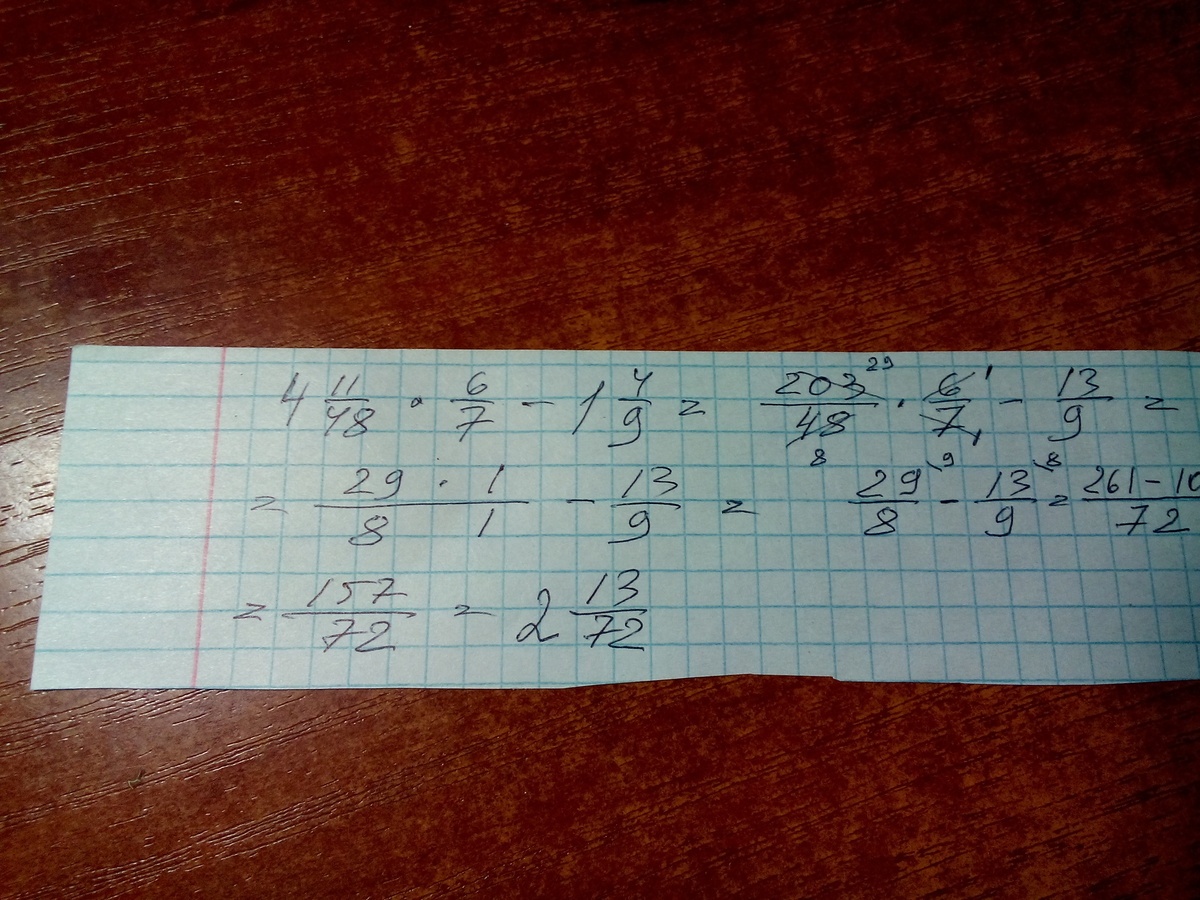 4 11/48 · 6/7 - 1 4/9 = 203/48 29 8 · 6/7 1 1 - 13/9 =
= 29 · 1/8 1 - 13/9 = 29/8 \9 - 13/9 \8 = 261-10/72
= 157/72 = 2 13/72